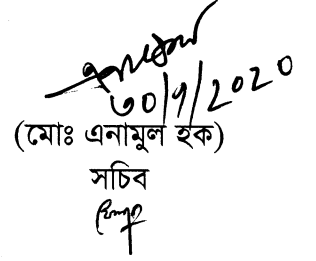 ৩০/৭/2020
(মোঃ এনামুল হক)
সচিব